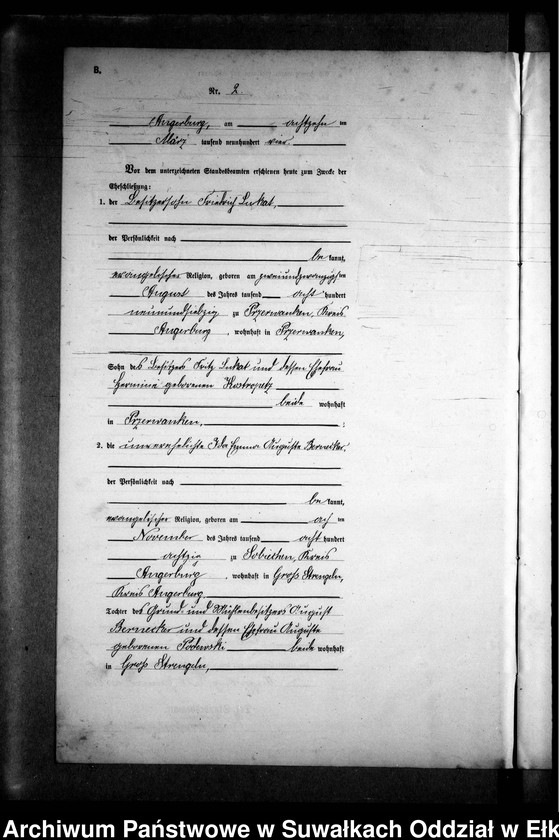 B.
Nr. 2.
Angerburg, am achtzehn ten
März tausend neunhundert vier.
Vor dem unterzeichneten Standesbeamten erschienen heute zum Zwecke der
Eheschließung:
1. der Besitzersohn Friedrich Lukat,
der Persönlichkeit nach
be kannt,
evangelischer Religion, geboren am zweiundzwanzigsten
August des Jahres tausend acht hundert
neunundsiebzig zu Przerwanken, Kreis
Angerburg, wohnhaft in Przerwanken,
Sohn des Besitzers Fritz Lukat und dessen Ehefrau
Hermine geborenen
beide wohnhaft
in Przerwanken, ;
2. die unverehelichte Ida Emma Auguste Bernecker,
der Persönlichkeit nach
be kannt,
evangelischer Religion, geboren am acht ten
November des Jahres tausend acht hundert
achtzig zu Sobiechen, Kreis
Angerburg, wohnhaft in Groß Strengeln,
Kreis Angerburg
Tochter des Grund- und Mühlenbesitzers August
Bernecker und dessen Ehefrau Auguste
geborenen Podewski beide wohnhaft
in Groß Strengeln,
Archiwum Państwowe w Suwałkach Oddział w Ełk